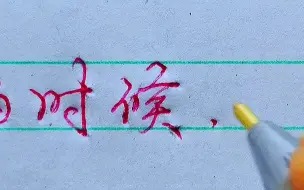 时候.